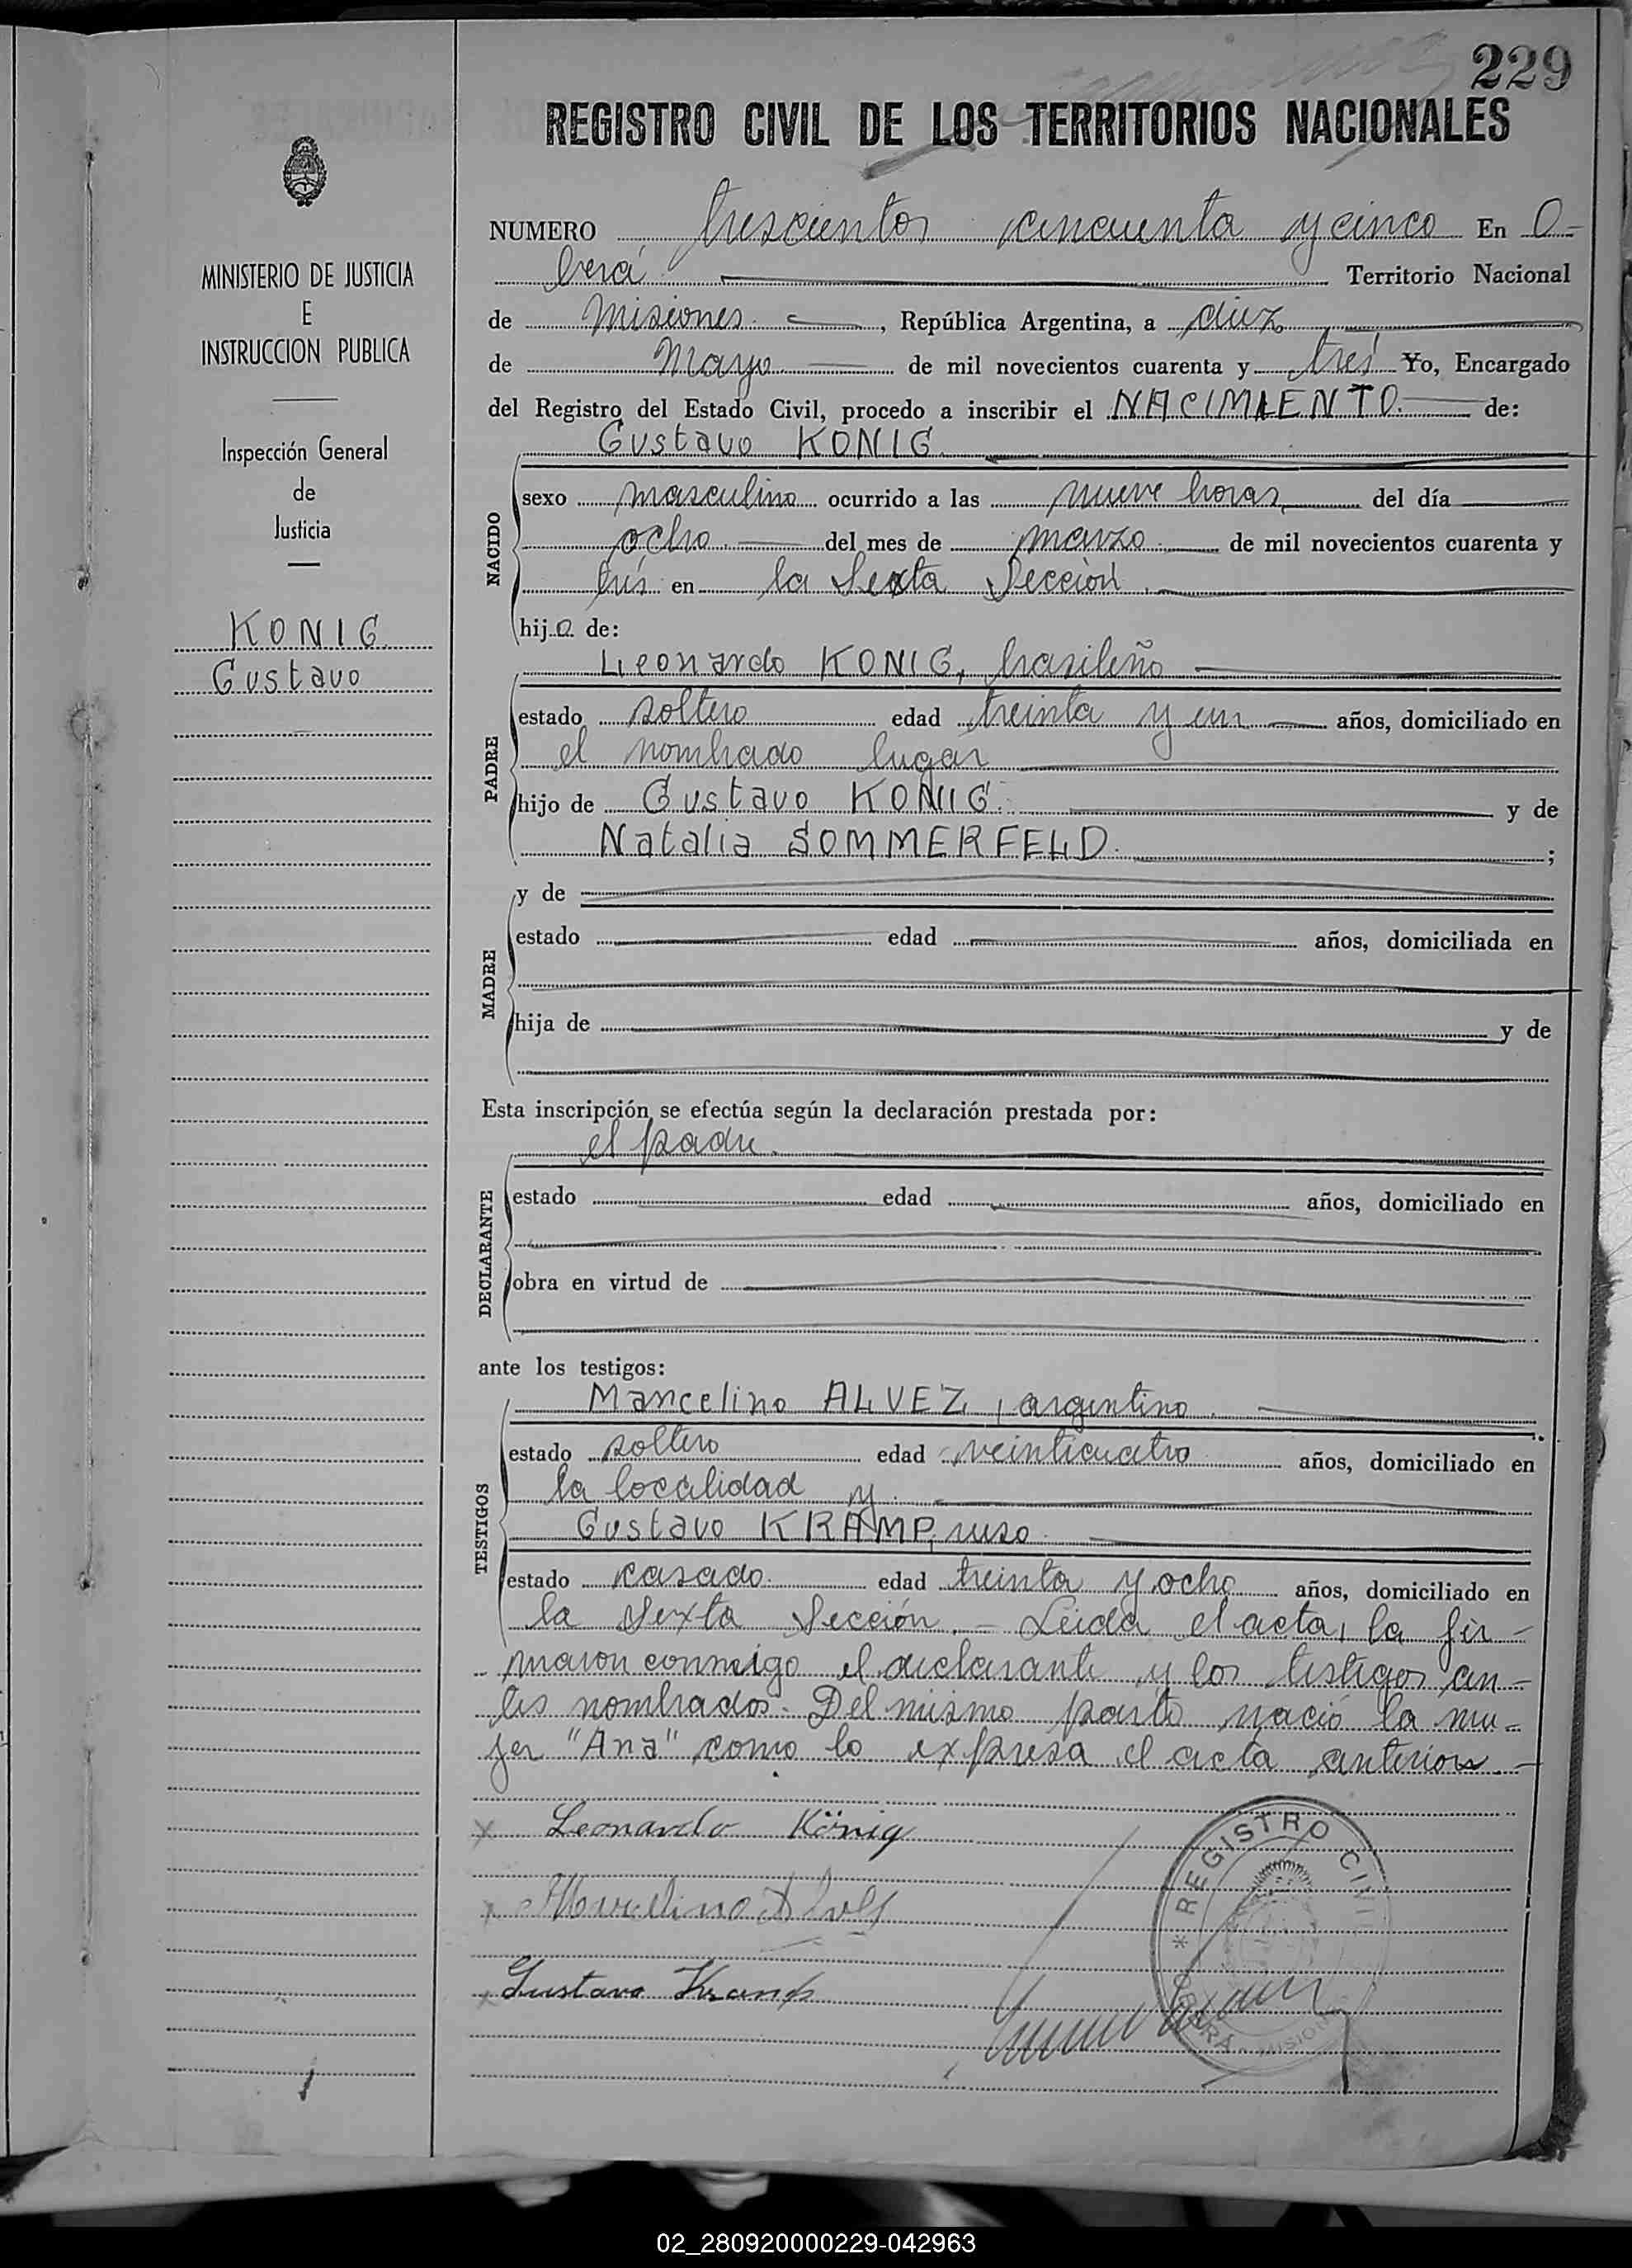 229
REGISTRO CIVIL DE LOS TERRITORIOS NACIONALES
MINISTERIO DE JUSTICIA
E
INSTRUCCION PUBLICA
Inspección General
de
Justicia
KONIG
Gustavo
NUMERO trescientos cincuenta y cinco En O-
berá Territorio Nacional
de Misiones, República Argentina, a diez
de Mayo de mil novecientos cuarenta y tres Yo, Encargado
del Registro del Estado Civil, procedo a inscribir el NACIMIENTO de:
NACIDO
Gustavo KONIG.
sexo masculino ocurrido a las nueve horas, del día
ocho del mes de marzo de mil novecientos cuarenta y
tres en la Sexta Sección.
hijo de:
PADRE
Leonardo KONIG, brasileño
estado soltero edad treinta y un años, domiciliado en
el nombrado lugar
hijo de Gustavo KONIG y de
Natalia SOMMERFELD. ;
MADRE
y de
estado edad años, domiciliada en
hija de y de
Esta inscripción se efectúa según la declaración prestada por:
DECLARANTE
el padre.
estado edad años, domiciliado en
obra en virtud de
ante los testigos:
TESTIGOS
Marcelino ALVEZ, argentino.
estado soltero edad veinticuatro años, domiciliado en
la localidad y
Gustavo KRAMP, ruso
estado casado edad treinta y ocho años, domiciliado en
la Sexta Sección.- Leida el acta, la fir-
maron conmigo el declarante y los testigos an-
tes nombrados. Del mismo parto nació la mu-
jer "Ana" como lo expresa el acta anterior.-
x Leonardo König
x Marcelino Alves
x Gustavo Kramp
* REGISTRO CIVIL
OBERÁ - MISIONES
02_280920000229-042963